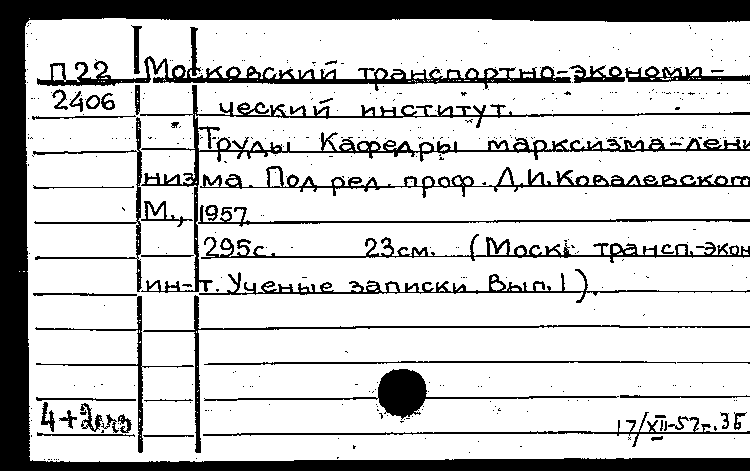 П22 Московский транспортно-экономи-
2406 ческий институт.
Труды Кафедры марксизма-лени
низма. Под ред. проф. Д.И.Ковалевского
М., 1957.
295с. 23см. (Моск. трансп.-экон
ин-т. Ученые записки. Вып. 1).
17/XII-57г. ЗБ